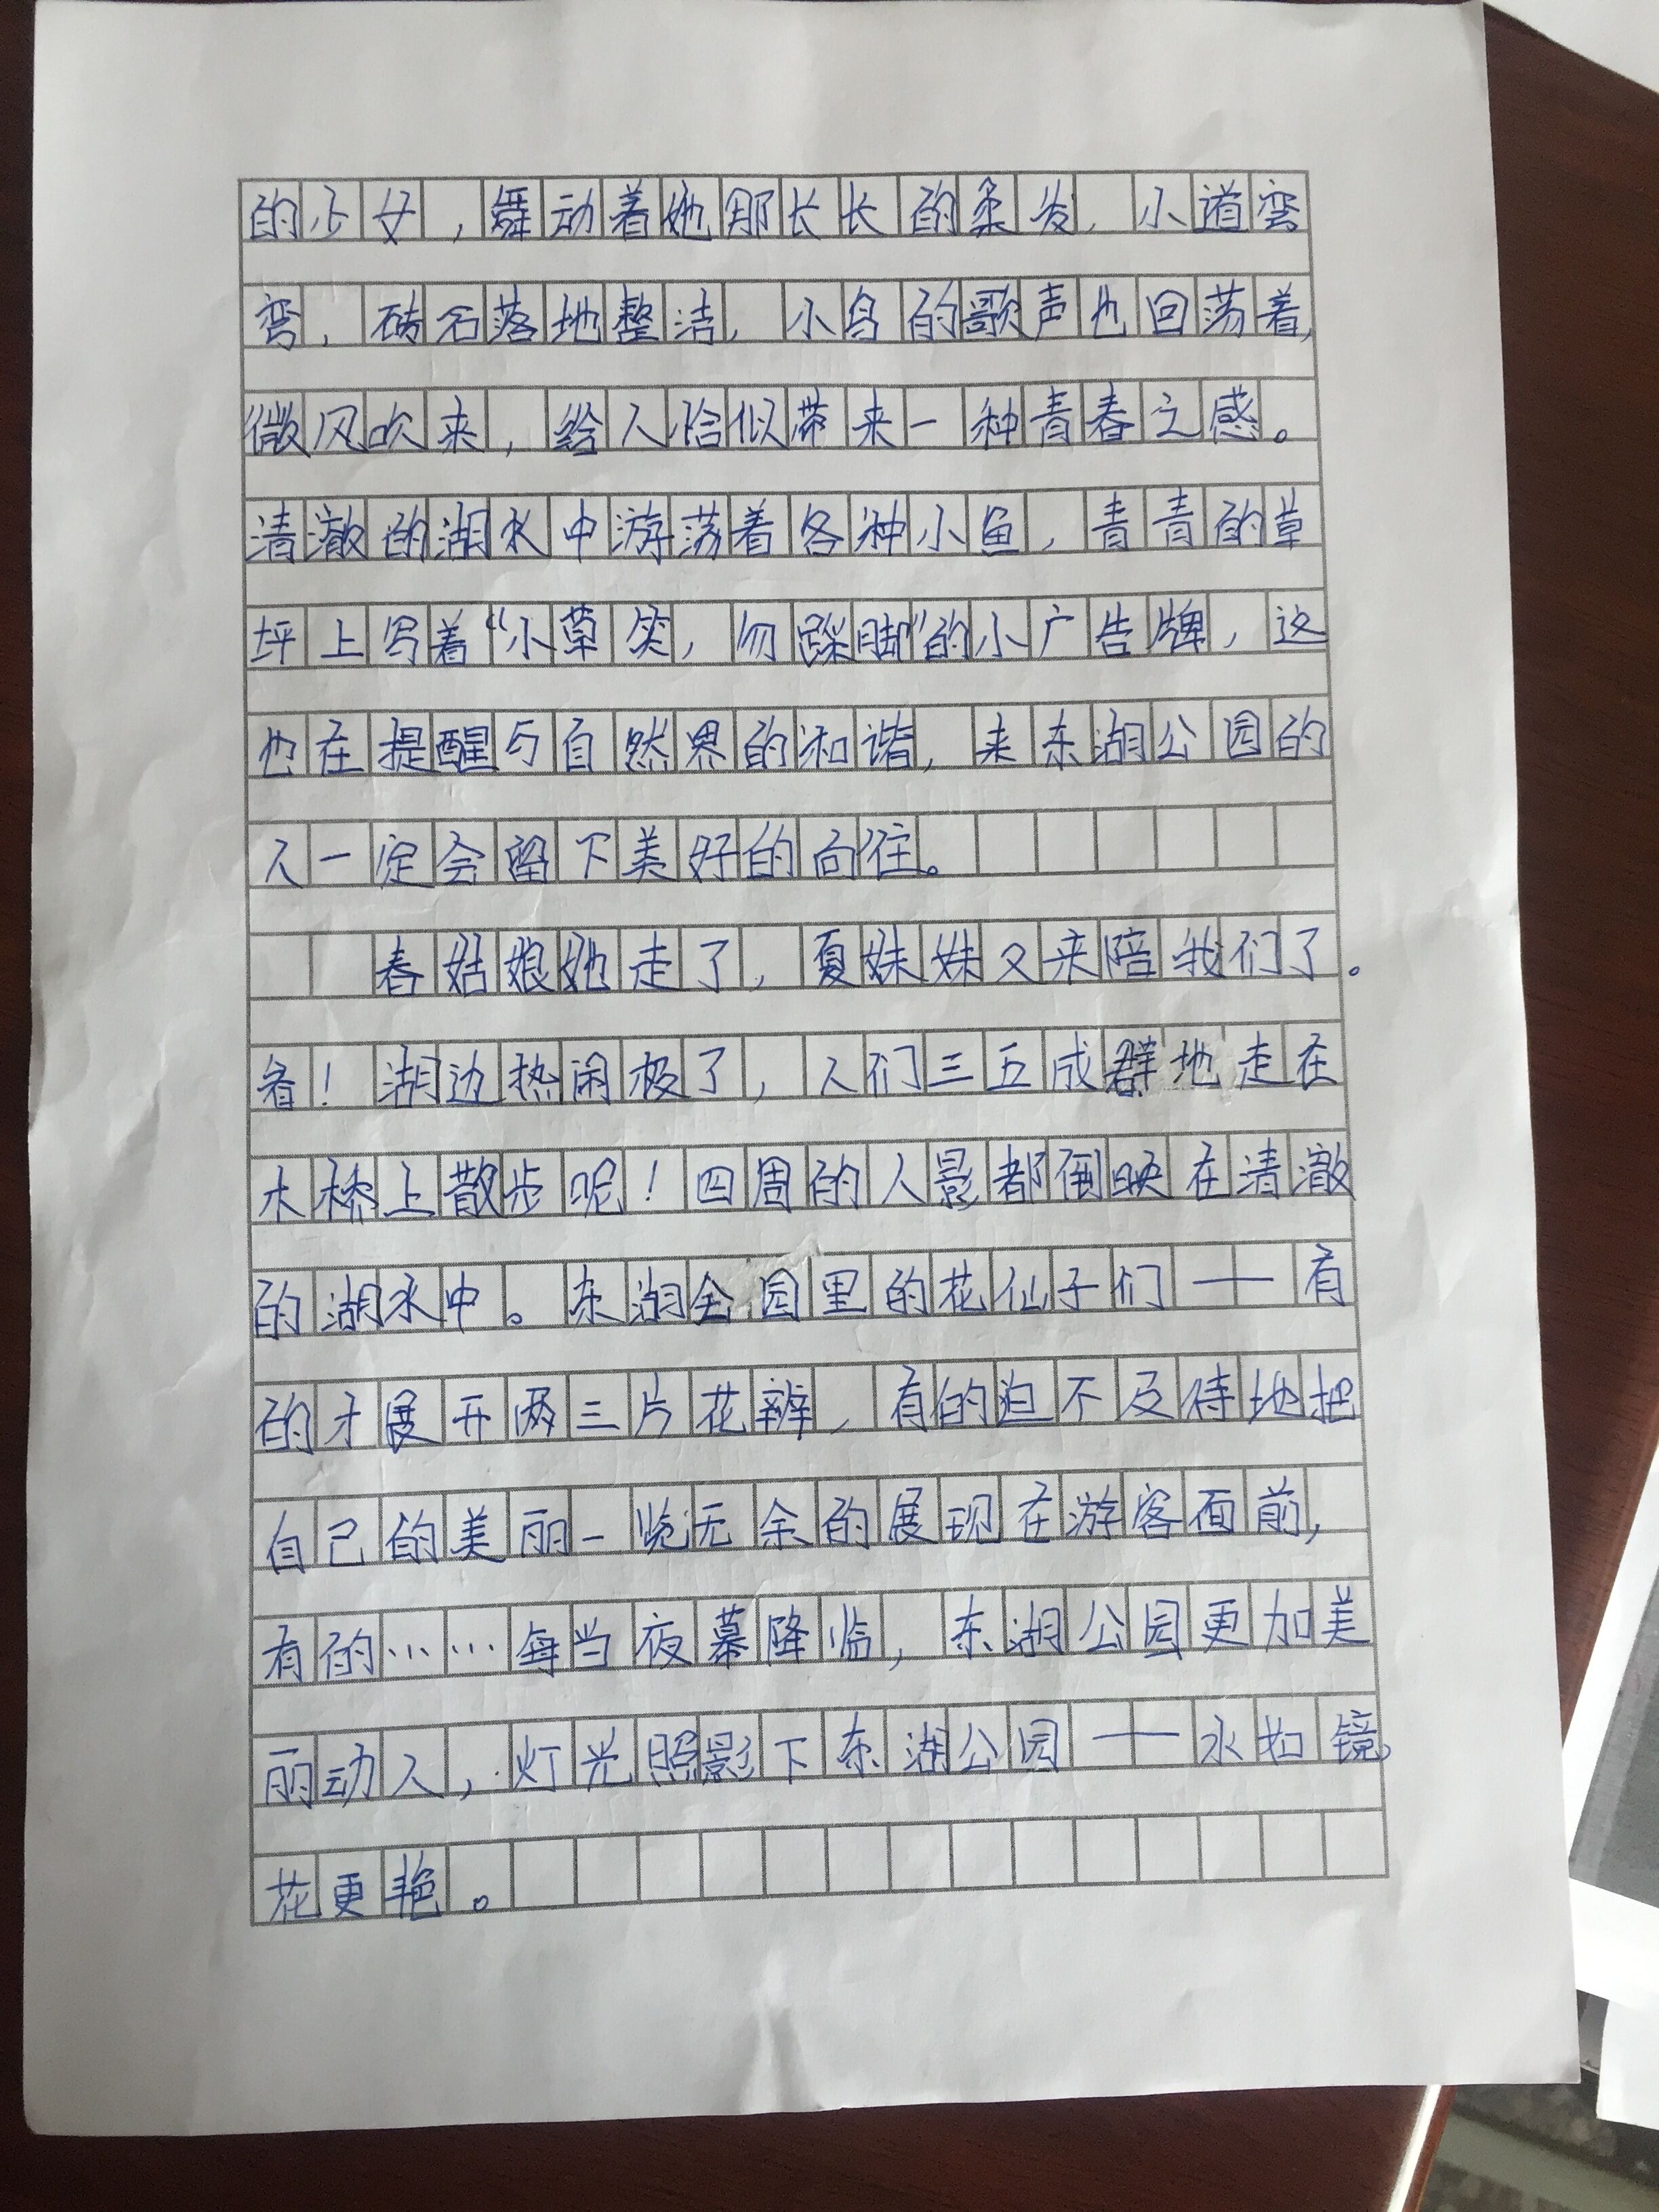 的少女，舞动着她那长长的柔发，小道弯
弯，砖石落地整洁，小鸟的歌声也回荡着，
微风吹来，给人恰似带来一种青春之感。
清澈的湖水中游荡着各种小鱼，青青的草
坪上写着“小草笑，勿踩脚”的小广告牌，这
也在提醒与自然界的和谐，来东湖公园的
人一定会留下美好的向往。
春姑娘她走了，夏妹妹又来陪我们了。
看！湖边热闹极了，人们三五成群地走在
木桥上散步呢！四周的人影都倒映在清澈
的湖水中。东湖公园里的花仙子们——有
的才展开两三片花辨，有的迫不及待地把
自己的美丽一览无余的展现在游客面前，
有的……每当夜幕降临，东湖公园更加美
丽动人，灯光照影下东湖公园——水如镜，
花更艳。